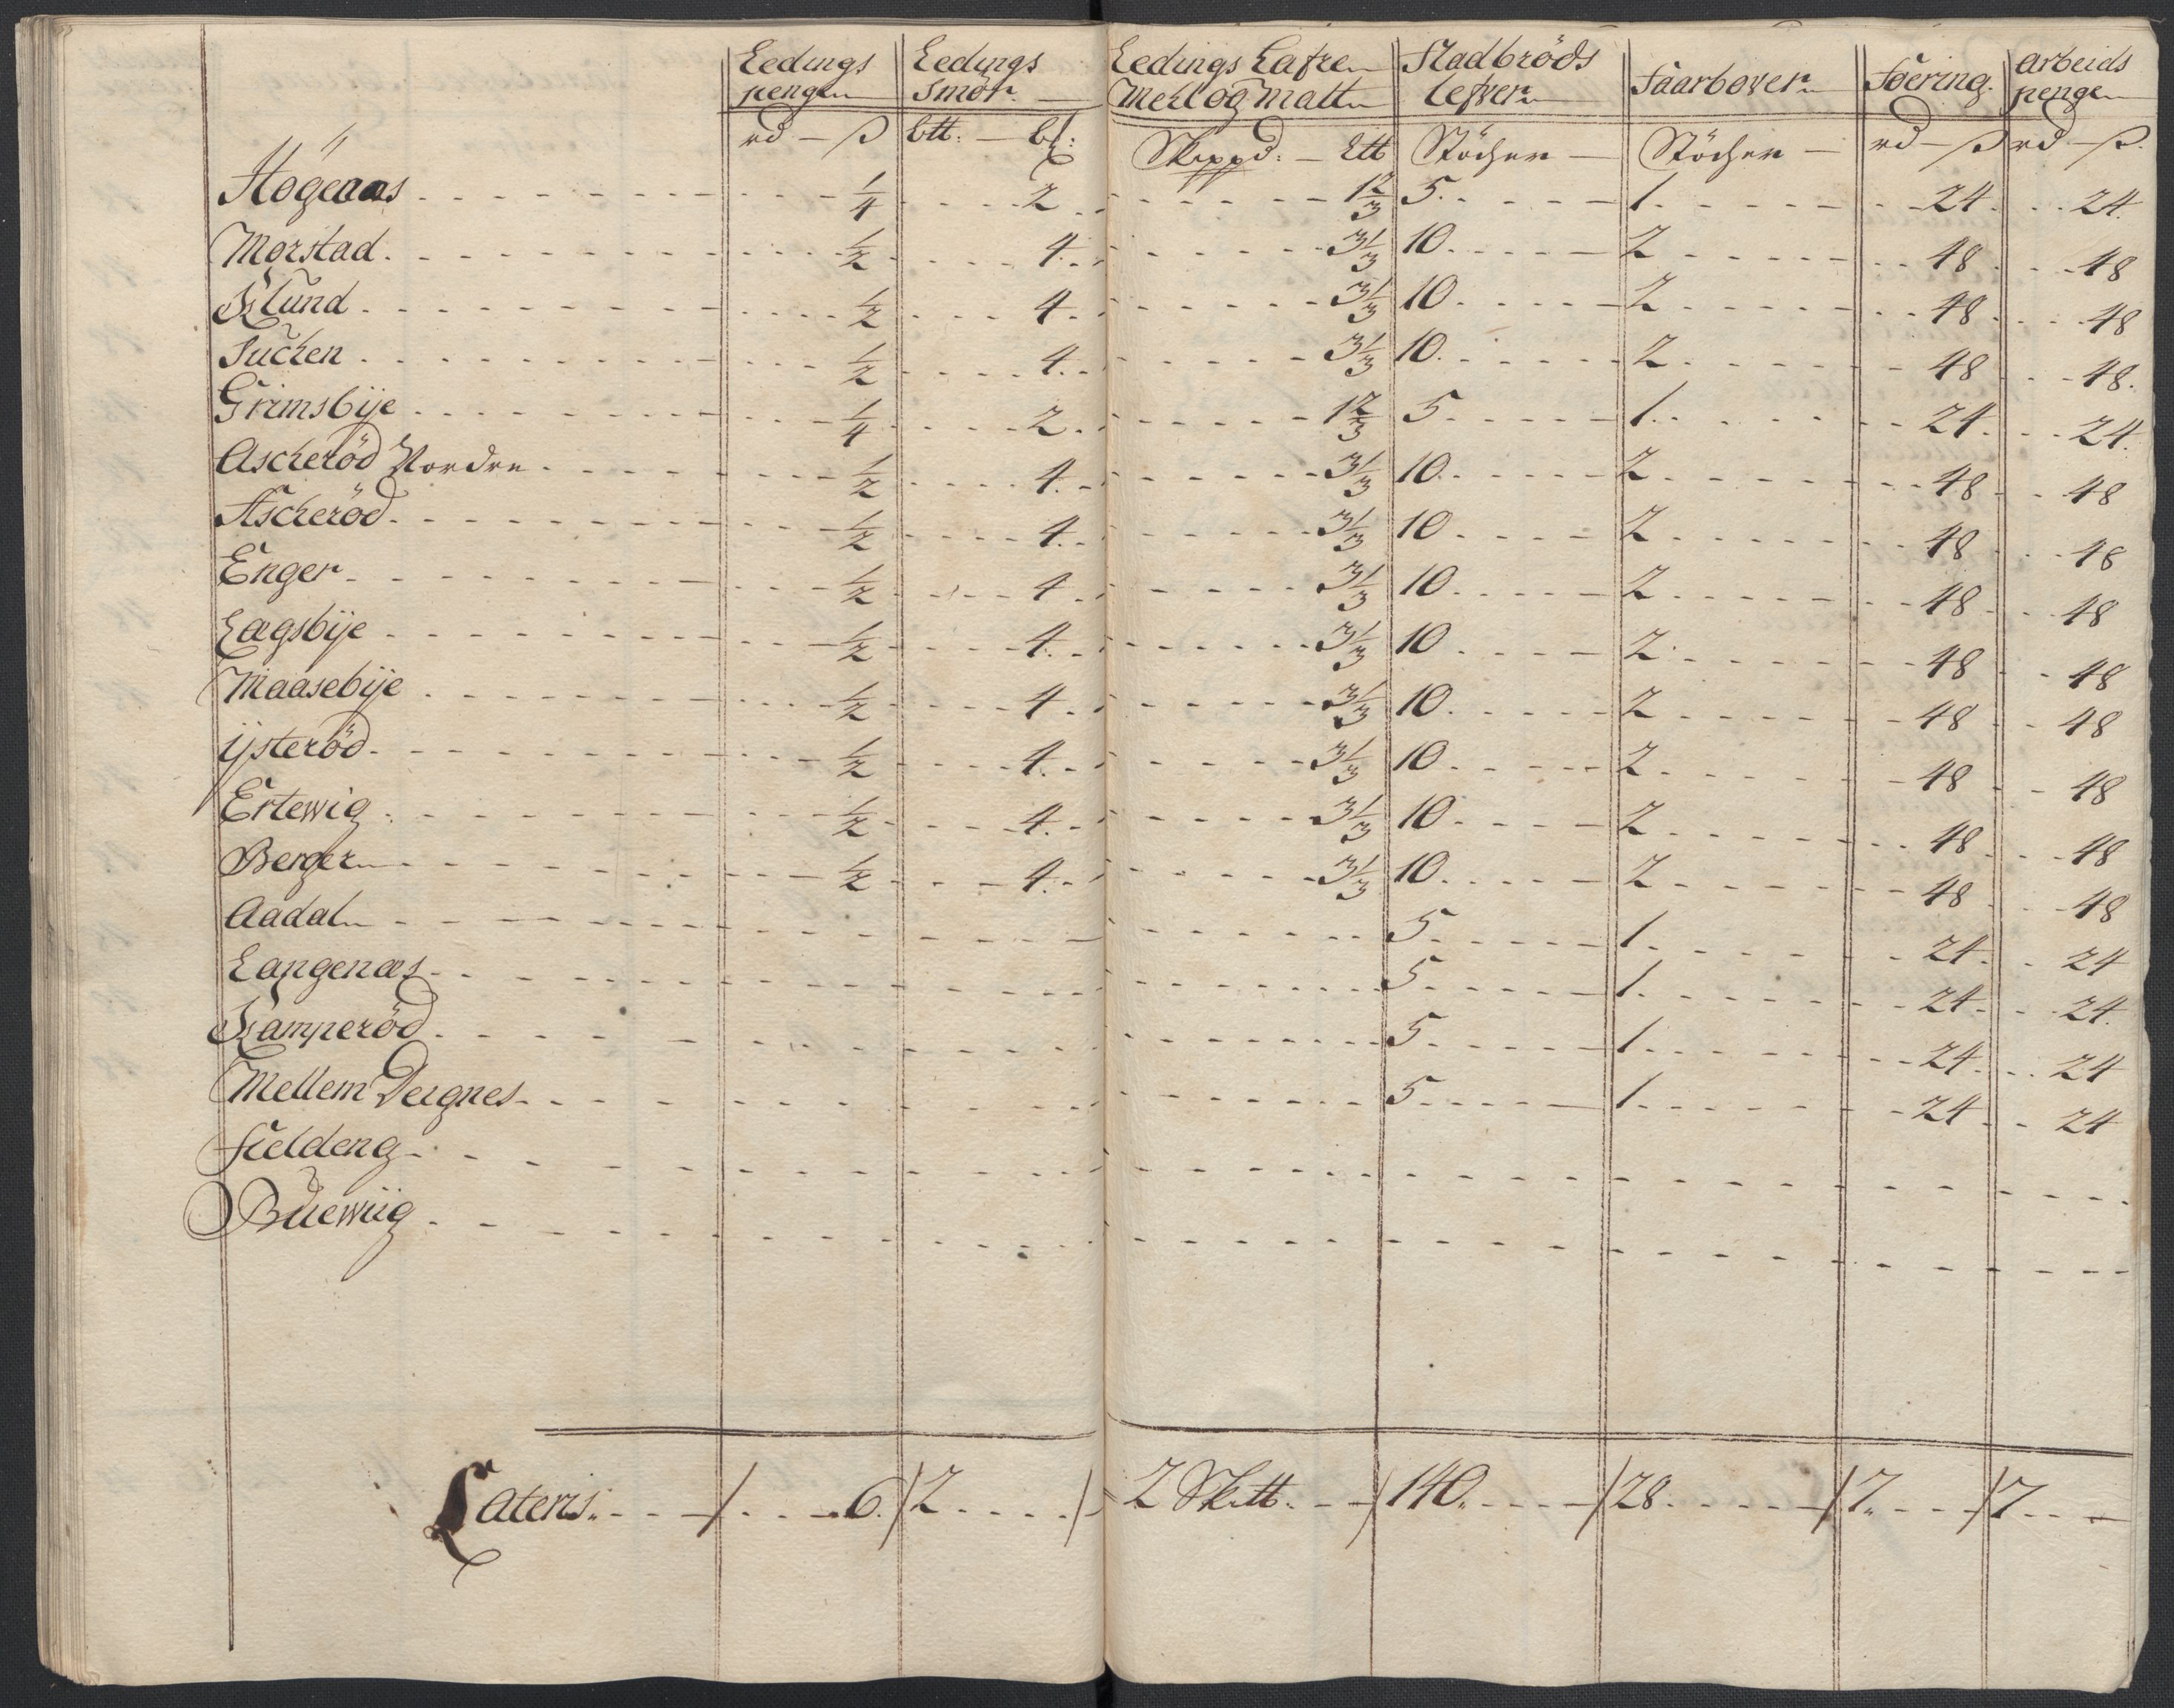 Ledings pengen | Ledings Smör | Ledings Hafre Mehl og Malt | Fladbröds lefver | Faarbover | Foering | Arbeids penge
rd — ß | btt: — | Skippd: — Ltt | Stöcher | Stöcher | rd — ß | rd — ß
Högenæs 1/4 2 1 2/3 5 1 24 24
Morstad 1/2 4 3 1/3 10 2 48 48
Klund 1/2 4 3 1/3 10 2 48 48
Suchen 1/2 4 3 1/3 10 2 48 48
Grimsbije 1/4 2 1 2/3 5 1 24 24
Ascheröd Nordre 1/2 4 3 1/3 10 2 48 48
Ascheröd 1/2 4 3 1/3 10 2 48 48
Enger 1/2 4 3 1/3 10 2 48 48
Lagsbije 1/2 4 3 1/3 10 2 48 48
Maasebije 1/2 4 3 1/3 10 2 48 48
ÿsteröd 1/2 4 3 1/3 10 2 48 48
Ertewig 1/2 4 3 1/3 10 2 48 48
Berger 1/2 4 3 1/3 10 2 48 48
Aadal 5 1 24 24
Langenæs 5 1 24 24
Kamperöd 5 1 24 24
Mellem Deignes 5 1 24 24
Fieldeng
Buewiig
Lateris 6 2 2 Sk:tt 140 28 7 7